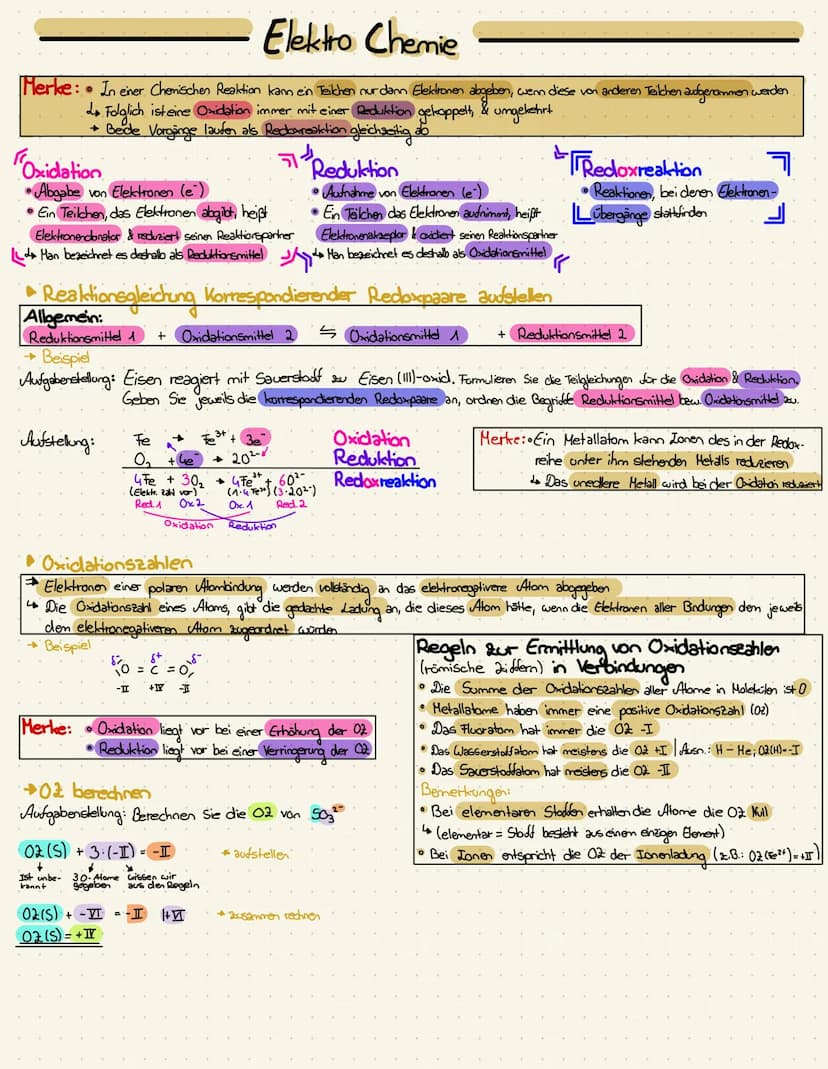 Elektro Chemie
Merke: • In einer Chemischen Reaktion kann ein Teilchen nur dann Elektronen abgeben, wenn diese von anderen Teilchen aufgenommen werden
↳ Folglich ist eine Oxidation immer mit einer Reduktion gekoppelt, & umgekehrt
→ Beide Vorgänge laufen als Redoxreaktion gleichzeitig ab
Oxidation
• Abgabe von Elektronen (e⁻)
• Ein Teilchen, das Elektronen abgibt, heißt
Elektronendonator & reduziert seinen Reaktionspartner
↳ Man bezeichnet es deshalb als Reduktionsmittel
Reduktion
• Aufnahme von Elektronen (e⁻)
• Ein Teilchen das Elektronen aufnimmt, heißt
Elektronenakzeptor & oxidiert seinen Reaktionspartner
↳ Man bezeichnet es deshalb als Oxidationsmittel
Redoxreaktion
• Reaktionen, bei denen Elektronen-
übergänge stattfinden
▸ Reaktionsgleichung Korrespondierender Redoxpaare aufstellen
Allgemein:
Reduktionsmittel 1 + Oxidationsmittel 2 ⇋ Oxidationsmittel 1 + Reduktionsmittel 2
→ Beispiel
Aufgabenstellung: Eisen reagiert mit Sauerstoff zu Eisen (III)-oxid. Formulieren Sie die Teilgleichungen für die Oxidation & Reduktion.
Geben Sie jeweils die korrespondierenden Redoxpaare an, ordnen die Begriffe Reduktionsmittel bzw. Oxidationsmittel zu.
Aufstellung: Fe → Fe³⁺ + 3e⁻ Oxidation
O₂ + 4e⁻ → 2O²⁻ Reduktion
4Fe + 3O₂ → 4Fe³⁺ + 6O²⁻ Redoxreaktion
(Elektr. zahl vor) (1·4 Fe³⁺) (3·2O²⁻)
Red.1 Ox.2 Ox.1 Red.2
Oxidation Reduktion
Merke: • Ein Metallatom kann Ionen des in der Redox-
reihe unter ihm stehenden Metalls reduzieren
↳ Das unedlere Metall wird bei der Oxidation reduziert
▸ Oxidationszahlen
→ Elektronen einer polaren Atombindung werden vollständig an das elektronegativere Atom abgegeben
↳ Die Oxidationszahl eines Atoms, gibt die gedachte Ladung an, die dieses Atom hätte, wenn die Elektronen aller Bindungen dem jeweils
dem elektronegativeren Atom zugeordnet würden
→ Beispiel
δ⁻ δ⁺ δ⁻
O = C = O
-II +IV -II
Merke: • Oxidation liegt vor bei einer Erhöhung der OZ
• Reduktion liegt vor bei einer Verringerung der OZ
→ OZ berechnen
Aufgabenstellung: Berechnen Sie die OZ von SO₃²⁻
OZ(S) + 3·(-II) = -II ← aufstellen
Ist unbe- 3 O-Atome wissen wir
kannt gegeben aus den Regeln
OZ(S) + -VI = -II |+VI → zusammen rechnen
OZ(S) = +IV
Regeln zur Ermittlung von Oxidationszahlen
(römische Ziffern) in Verbindungen
• Die Summe der Oxidationszahlen aller Atome in Molekülen ist 0
• Metallatome haben immer eine positive Oxidationszahl (OZ)
• Das Fluoratom hat immer die OZ -I
• Das Wasserstoffatom hat meistens die OZ +I | Ausn.: H - Me; OZ(H)=-I
• Das Sauerstoffatom hat meistens die OZ -II
Bemerkungen:
• Bei elementaren Stoffen erhalten die Atome die OZ Null
↳ (elementar = Stoff besteht aus einem einzigen Element)
• Bei Ionen entspricht die OZ der Ionenladung (z.B.: OZ(Fe²⁺)=+II)